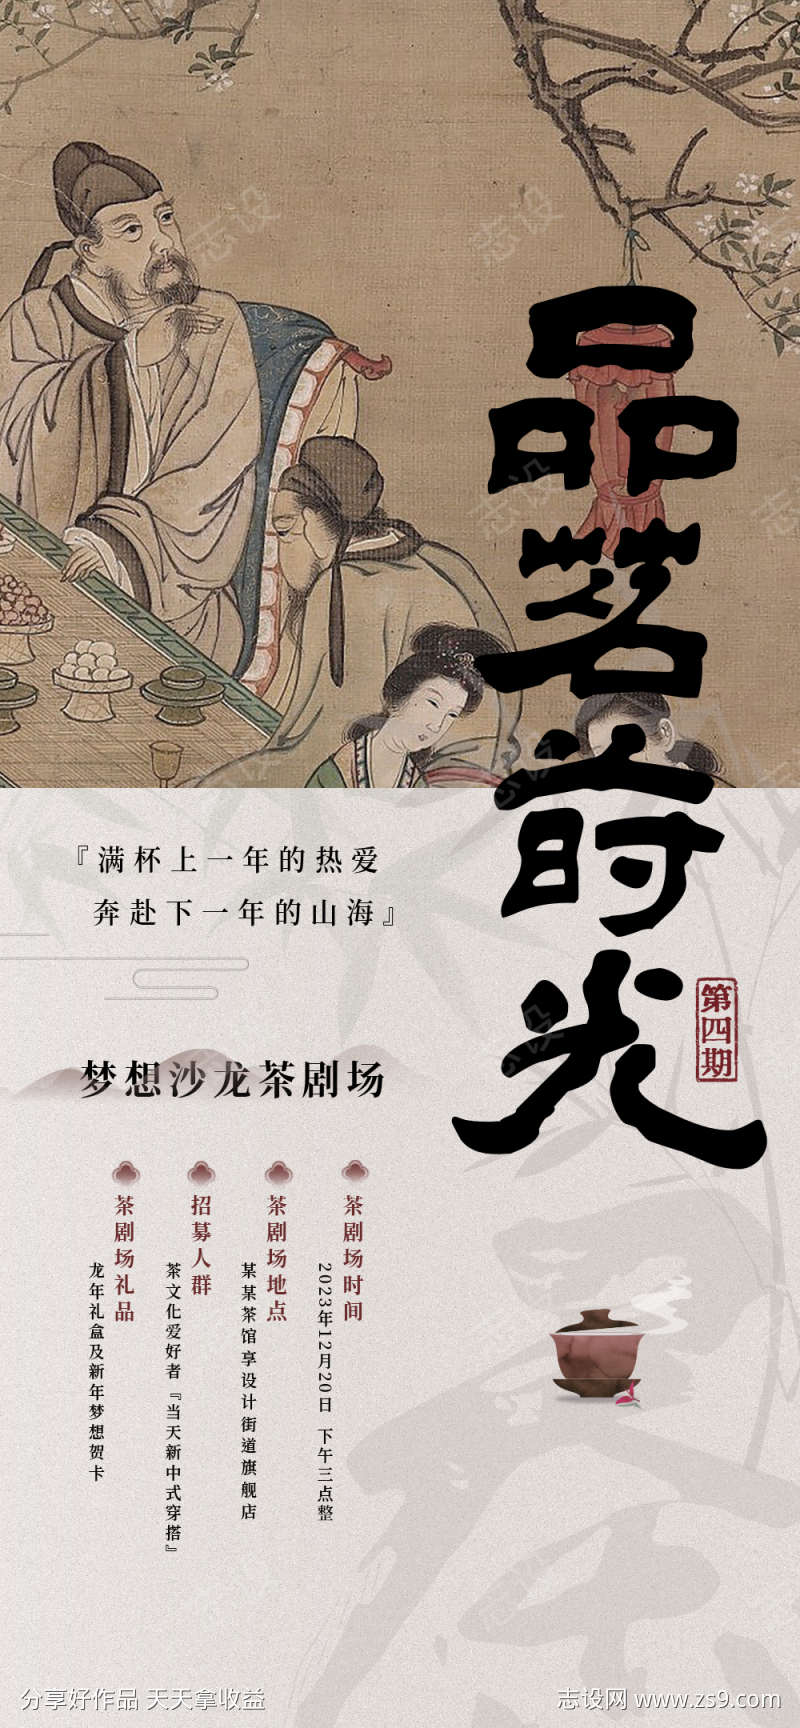 品茗时光
第四期
『满杯上一年的热爱
奔赴下一年的山海』
梦想沙龙茶剧场
茶剧场时间
2023年12月20日 下午三点整
茶剧场地点
某某茶馆享设计街道旗舰店
招募人群
茶文化爱好者『当天新中式穿搭』
茶剧场礼品
龙年礼盒及新年梦想贺卡
分享好作品 天天拿收益
志设网 www.zs9.com
志设